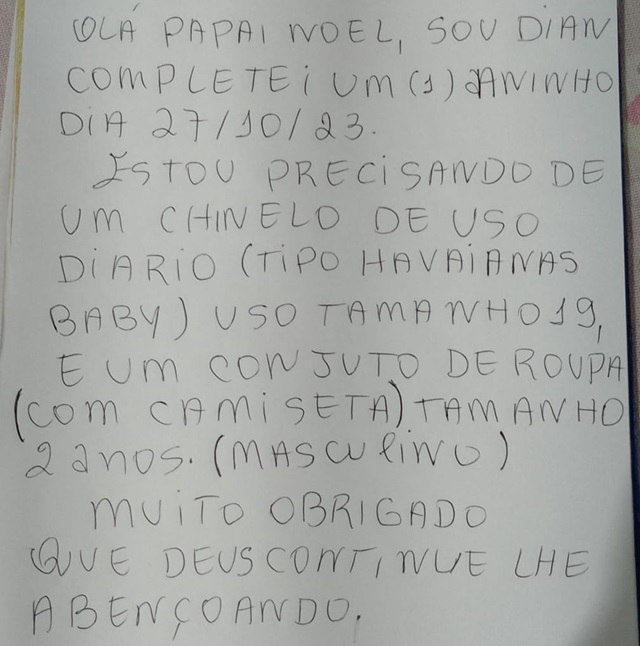 OLÁ PAPAI NOEL, SOU DIAN
COMPLETEI UM (1) ANINHO
DIA 27/10/23.
ESTOU PRECISANDO DE
UM CHINELO DE USO
DIARIO (TIPO HAVAIANAS
BABY) USO TAMANHO 19,
E UM CONJUTO DE ROUPA
(COM CAMISETA) TAMANHO
2 anos. (MASCULINO)
MUITO OBRIGADO
QUE DEUS CONTINUE LHE
ABENÇOANDO.